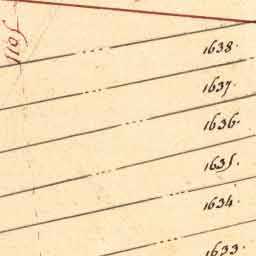 1638.
1637.
1636.
1635.
1634.
1633.